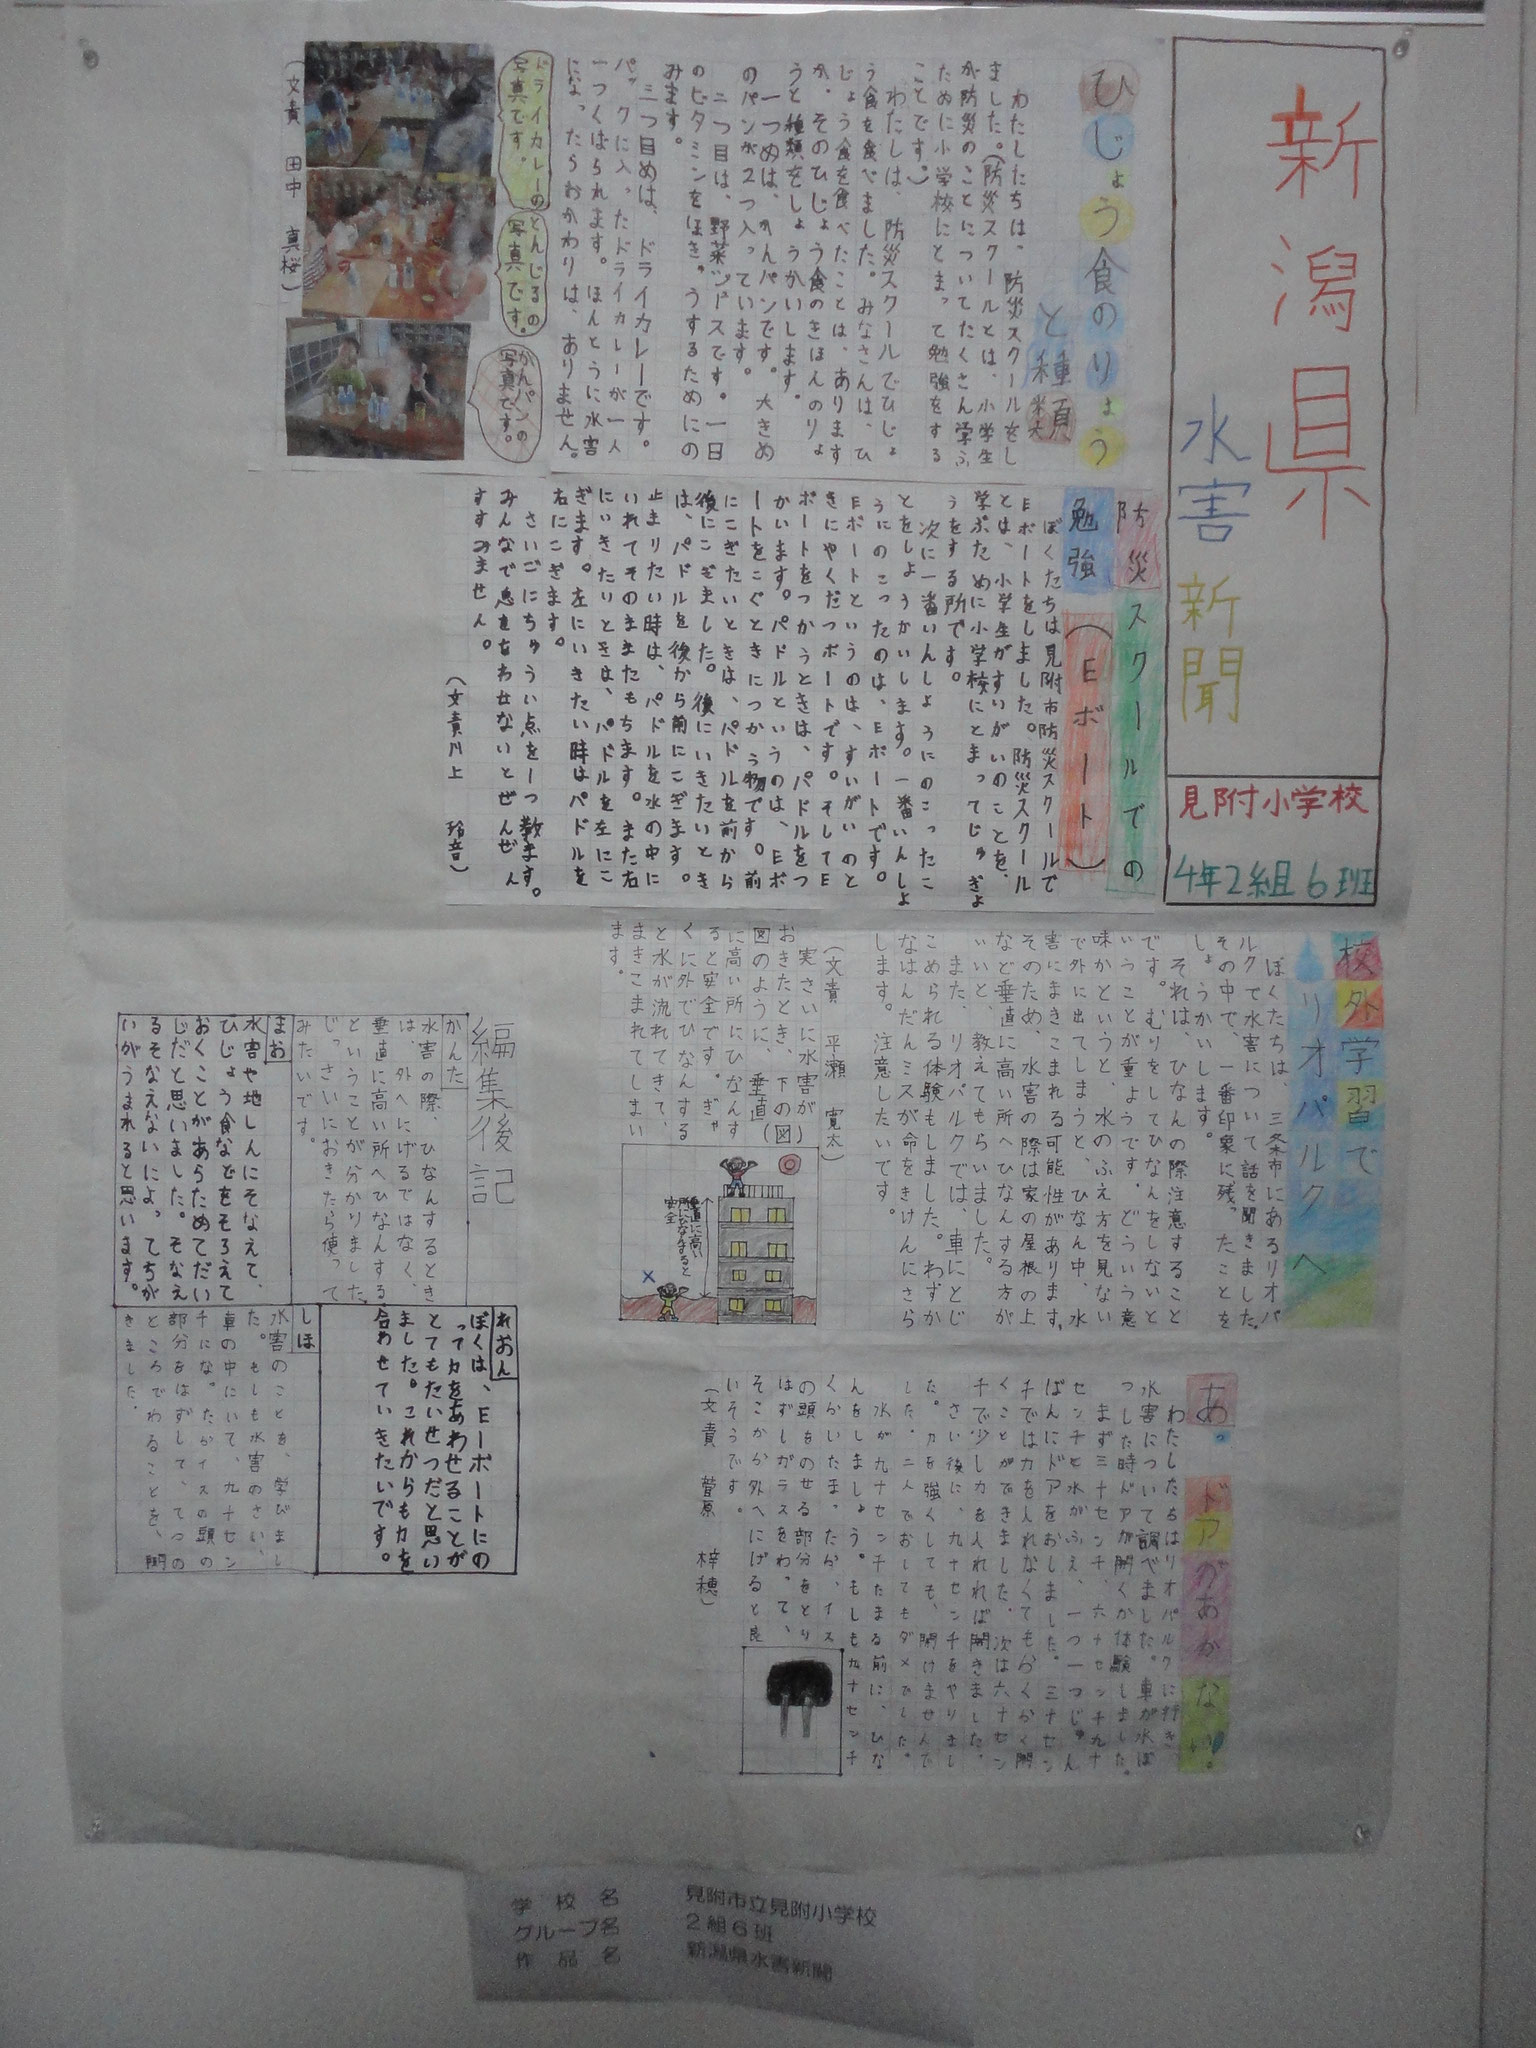 新潟県
水害新聞
見附小学校
4年2組6班
ひじょう食のりょう
と種類
わたしたちは、防災スクールをし
ました。(防災スクールとは、小学生
が防災のことについてたくさん学ぶ
ために小学校にとまって勉強をする
ことです。)
わたしは、防災スクールでひじょ
う食を食べました。みなさんは、ひ
じょう食を食べたことは、あります
か。そのひじょう食のきほんのりょ
うと種類をしょうかいします。
一つめは、かんパンです。大きめ
のパンが2つ入っています。
二つ目は、野菜ジュースです。一日
のビタミンをほきゅうするためにの
みます。
三つ目めは、ドライカレーです。
パックに入ったドライカレーが一人
一つくばられます。ほんとうに水害
になったらおかわりは、ありません。
ドライカレーの
写真です。
とんじるの
写真です。
かんパンの
写真です。
(文責 田中 真桜)
防災スクールでの
勉強(Eボート)
ぼくたちは見附市防災スクールで
Eボートをしました。防災スクール
とは、小学生がすいがいのことを、
学ぶために小学校にとまってじゅぎょ
うをする所です。
次に一番いんしょうにのこったこ
とをしょうかいします。一番いんしょ
うにのこったのは、Eボートです。
Eボートというのは、すいがいのと
きにやくだつボートです。そしてE
ボートをつかうときは、パドルをつ
かいます。パドルというのは、Eボ
ートをこぐときにつかう物です。前
にこぎたいときは、パドルを前から
後にこぎました。後にいきたいとき
は、パドルを後から前にこぎます。
止まりたい時は、パドルを水の中に
いれてそのまままたもちます。また右
にいきたいときは、パドルを左にこ
ぎます。左にいきたい時はパドルを
右にこぎます。
さいごにちゅうい点を一つ教ます。
みんなで息をあわせないとぜんぜん
すすみません。
(文責 川上 玲音)
校外学習で
リオパルクへ
ぼくたちは、三条市にあるリオパ
ルクで水害について話を聞きました。
その中で、一番印象に残ったことを
しょうかいします。
それは、ひなんの際注意すること
です。むりをしてひなんをしないと
いうことが重ようです。どういう意
味かというと、水のふえ方を見ない
で外に出てしまうと、ひなん中、水
害にまきこまれる可能性があります。
そのため、水害の際は家の屋根の上
など垂直に高い所へひなんする方が
いいと、教えてもらいました。
また、リオパルクでは、車にとじ
こめられる体験もしました。わずか
なはんだんミスが命をきけんにさら
します。注意したいです。
(文責 平瀬 寛太)
実さいに水害が
おきたとき、下の(図)
図のように、垂直
に高い所にひなんす
ると安全です。ぎゃ
くに外でひなんする
と水が流れてきて、
まきこまれてしまい
ます。
垂直に高い
所にひなんすると
安全
あっ ドアがあかない。
わたしたちはリオパルクに行き、
水害について調べました。車が水ぼ
つした時ドアが開くか体験しました。
まず三十センチ、六十センチ九十
センチと水がふえ、一つ一つじゅん
ばんにドアをおしました。三十セン
チでは力を入れなくてもらくらく開
くことができました。次は六十セン
チで少し力を入れれば開きました。
さい後に、九十センチをやりまし
た。力を強くしても、開けませんで
した。二人でおしてもダメでした。
水が九十センチたまる前に、ひな
んをしましょう。もしも九十センチ
くらいたまったら、イス
の頭をのせる部分をとり
はずしガラスをわって、
そこから外へにげると良
いそうです。
(文責 菅原 梓穂)
編集後記
かんた
水害の際、ひなんするとき
は、外へにげるではなく、
垂直に高い所へひなんする
ということが分かりました。
じっさいにおきたら使って
みたいです。
まお
水害や地しんにそなえて、
ひじょう食などをそろえて
おくことがあらためてだい
じだと思いました。そなえ
るそなえないによってちが
いがうまれると思います。
れおん
ぼくは、Eーボートにの
って力をあわせることが
とてもたいせつだと思い
ました。これからも力を
合わせていきたいです。
しほ
水害のことを、学びまし
た。もしも水害のさい、
車の中にいて、九十セン
チになったらイスの頭の
部分をはずして、てつの
ところでわることを、聞
きました。
学校名 見附市立見附小学校
グループ名 2組6班
作品名 新潟県水害新聞